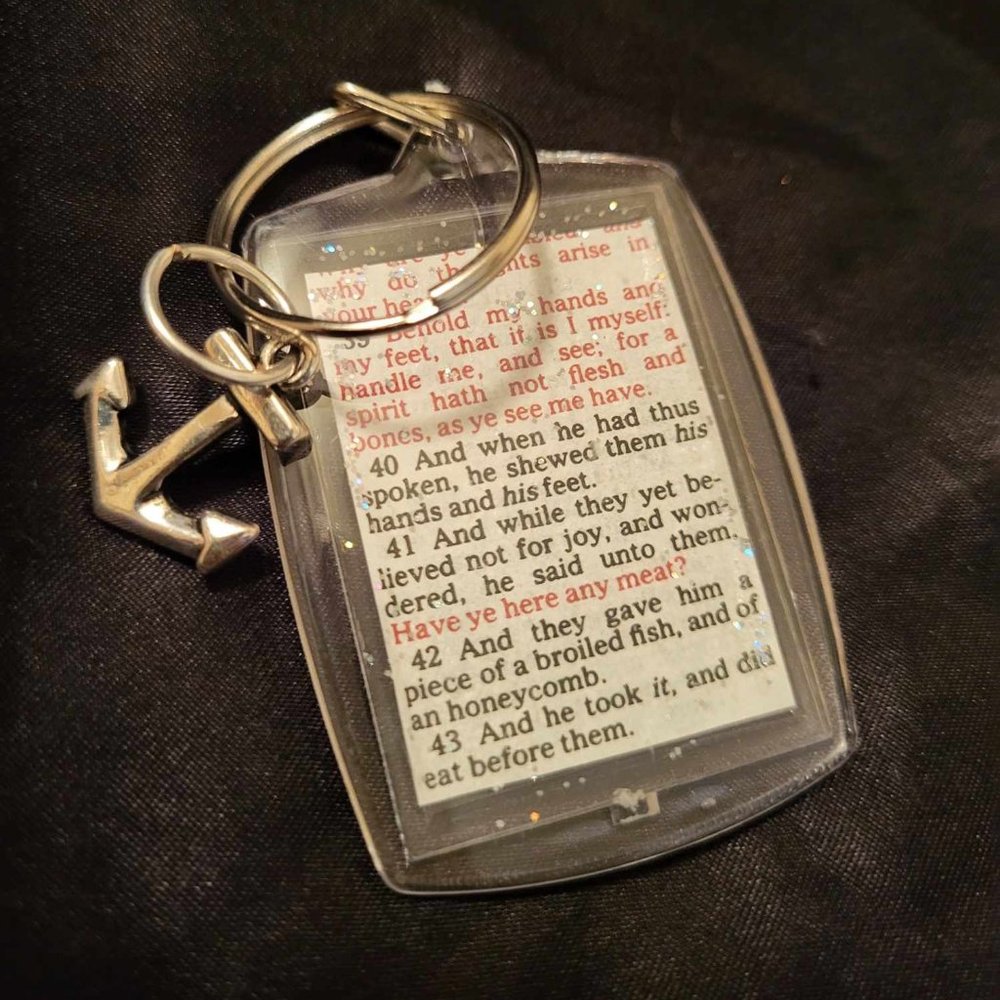 are ye and
why do thoughts arise in
your
39 Behold my hands and
my feet, that it is I myself:
handle me, and see; for a
spirit hath not flesh and
bones, as ye see me have.
40 And when he had thus
spoken, he shewed them his
hands and his feet.
41 And while they yet be-
lieved not for joy, and won-
dered, he said unto them,
Have ye here any meat?
42 And they gave him a
piece of a broiled fish, and of
an honeycomb.
43 And he took it, and did
eat before them.